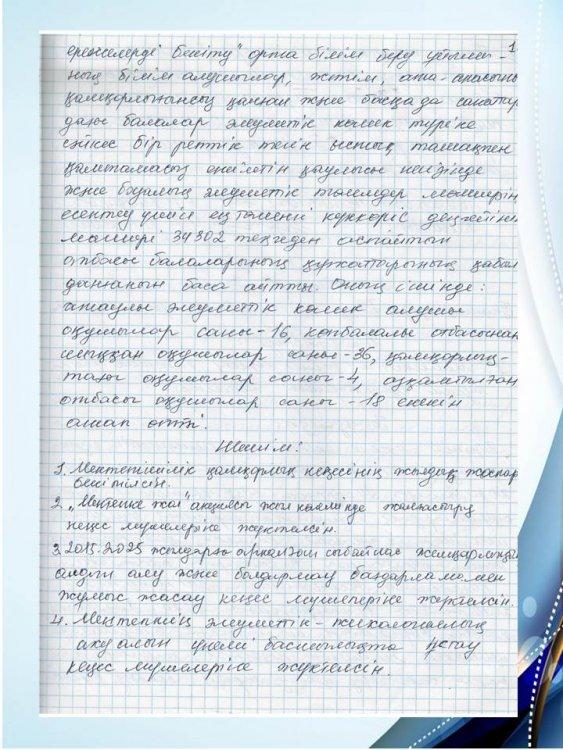 1
ережелерді бекіту" орта білім беру ұйымы-
ның білім алушылар, жетім, ата-анасының
қамқорлығынсыз қалған және басқа да санаттар
дағы балалар әлеуметтік көмек түріне
сәйкес бір реттік тегін ыстық тамақпен
қамтамасыз ету қаулысы негізінде
және бұдан әлеуметтік төлемдер мөлшерін
есептеу үшін ең төменгі күнкөріс деңгейінің
мөлшері 34302 теңгеден аспайтын
отбасы балаларының құжаттарының қабыл
данғанын баса айтты. Оның ішінде:
атаулы әлеуметтік көмек алушы
оқушылар саны-16, көпбалалы отбасынан
шыққан оқушылар саны-36, қамқорлық-
тағы оқушылар саны-4, аз қамтылған
отбасы оқушылар саны -18 екенін
атап өтті.
Шешім:
1. Мектепішілік қамқорлық кеңесінің жылдық жоспары
бекітілсін.
2. „Мектепке жол" акциясы жыл көлемінде жалғастыру
кеңес мүшелеріне жүктелсін.
3. 2015-2025 жылдарға арналған сыбайлас жемқорлықтың
алдын алу және болдырмау бағдарламамен
жұмыс жасау кеңес мүшелеріне жүктелсін.
4. Мектептің әлеуметтік-психологиялық
ахуалын үнемі басшылықта ұстау
кеңес мүшелеріне жүктелсін.